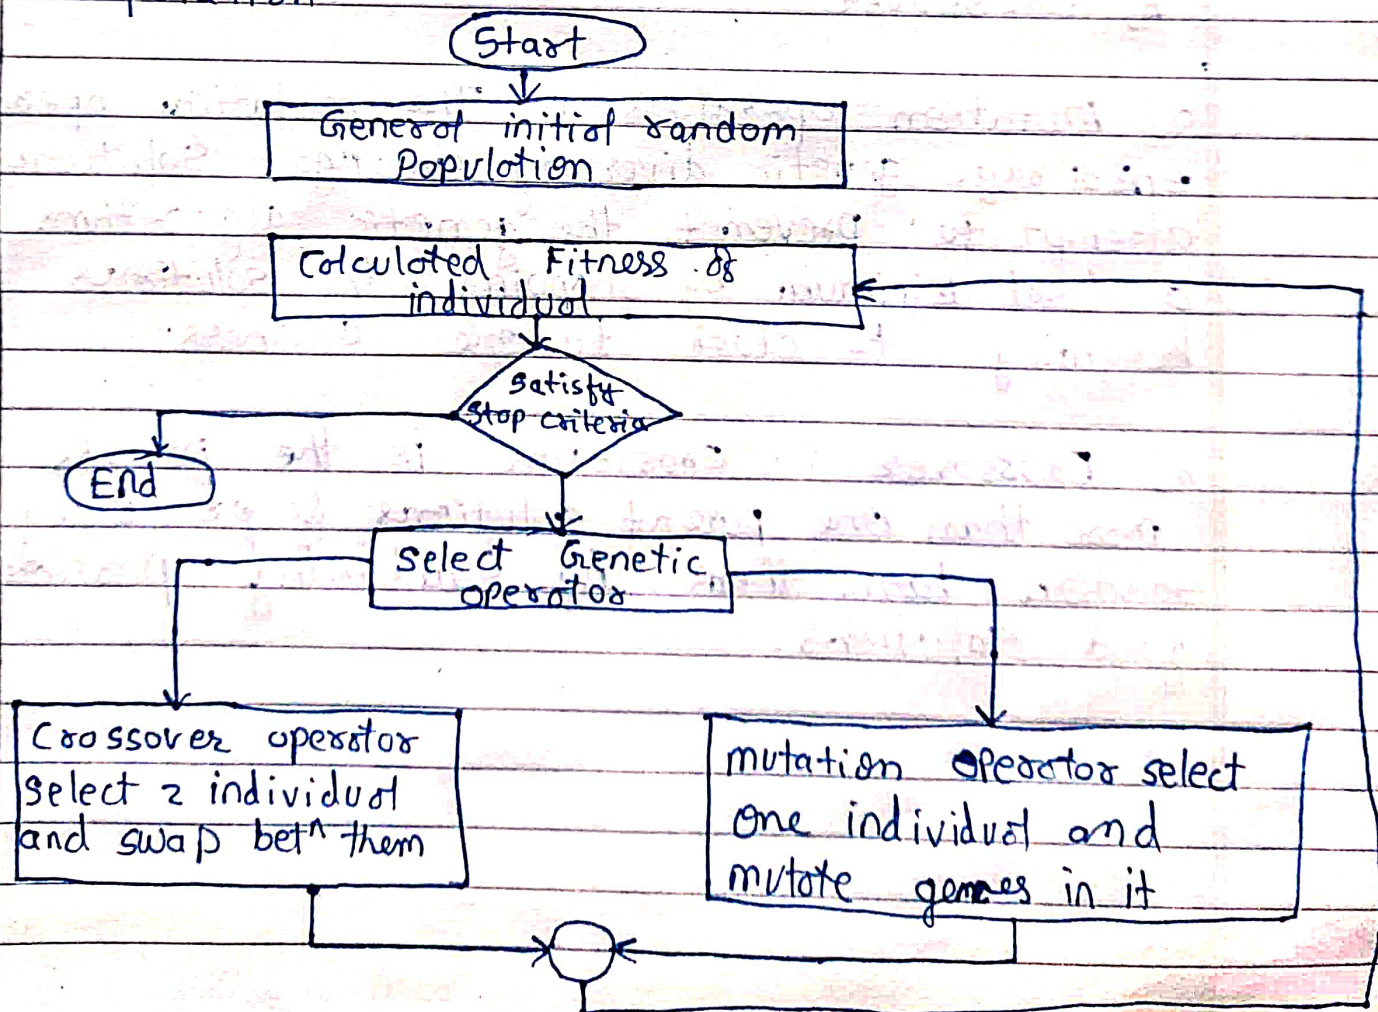 Start
General initial random
Population
Calculated Fitness of
individual
Satisfy
Stop criteria
End
Select Genetic
operator
Crossover operator
Select 2 individual
and swap betn them
mutation operator select
one individual and
mutate genes in it